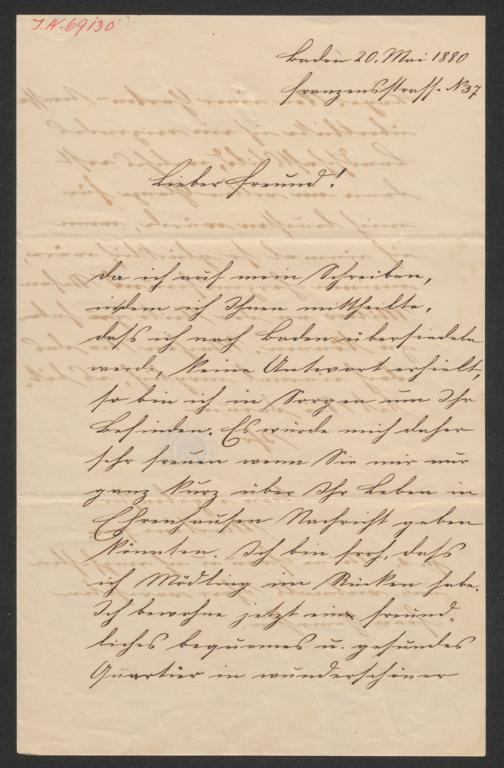 I.N. 69130
Baden 20. Mai 1880
Franzensstrasse N 37
Lieber Freund!
Da ich auf mein Schreiben,
in dem ich Ihnen mittheilte,
daß ich nach Baden übersiedeln
werde, keine Antwort erhielt,
so bin ich in Sorgen um Ihr
Befinden. Es würde mich daher
sehr freuen wenn Sie mir nur
ganz kurz über Ihr Leben in
Ehrenhausen Nachricht geben
könnten. Ich bin froh, daß
ich Mödling im Rücken habe.
Ich bewohne jetzt ein freund-
liches bequemes u. gesundes
Quartier in wunderschöner